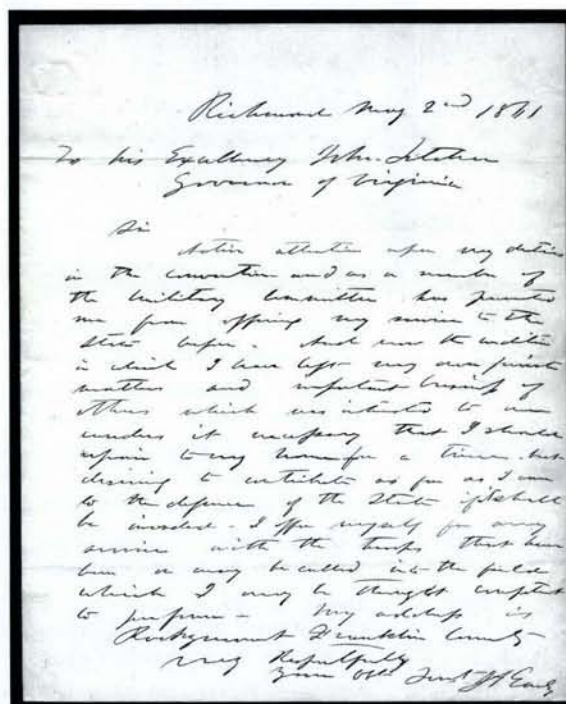 Richmond May 2nd 1861
To his Excellency John Letcher
Governor of Virginia
Sir
Active attention upon my duties
in the convention and as a member of
the Military Committee has prevented
me from offering my services to the
State before. And now the condition
in which I have left my own private
matters and important business of
others which was intrusted to me
renders it necessary that I should
repair to my home for a time. but
desiring to contribute as far as I can
to the defence of the State if it shall
be invaded. I offer myself for any
service with the troops that have
been or may be called into the field
which I may be thought competent
to perform - My address is
Rockymount Franklin County
Very Respectfully
Your Obt. Servt J A Early